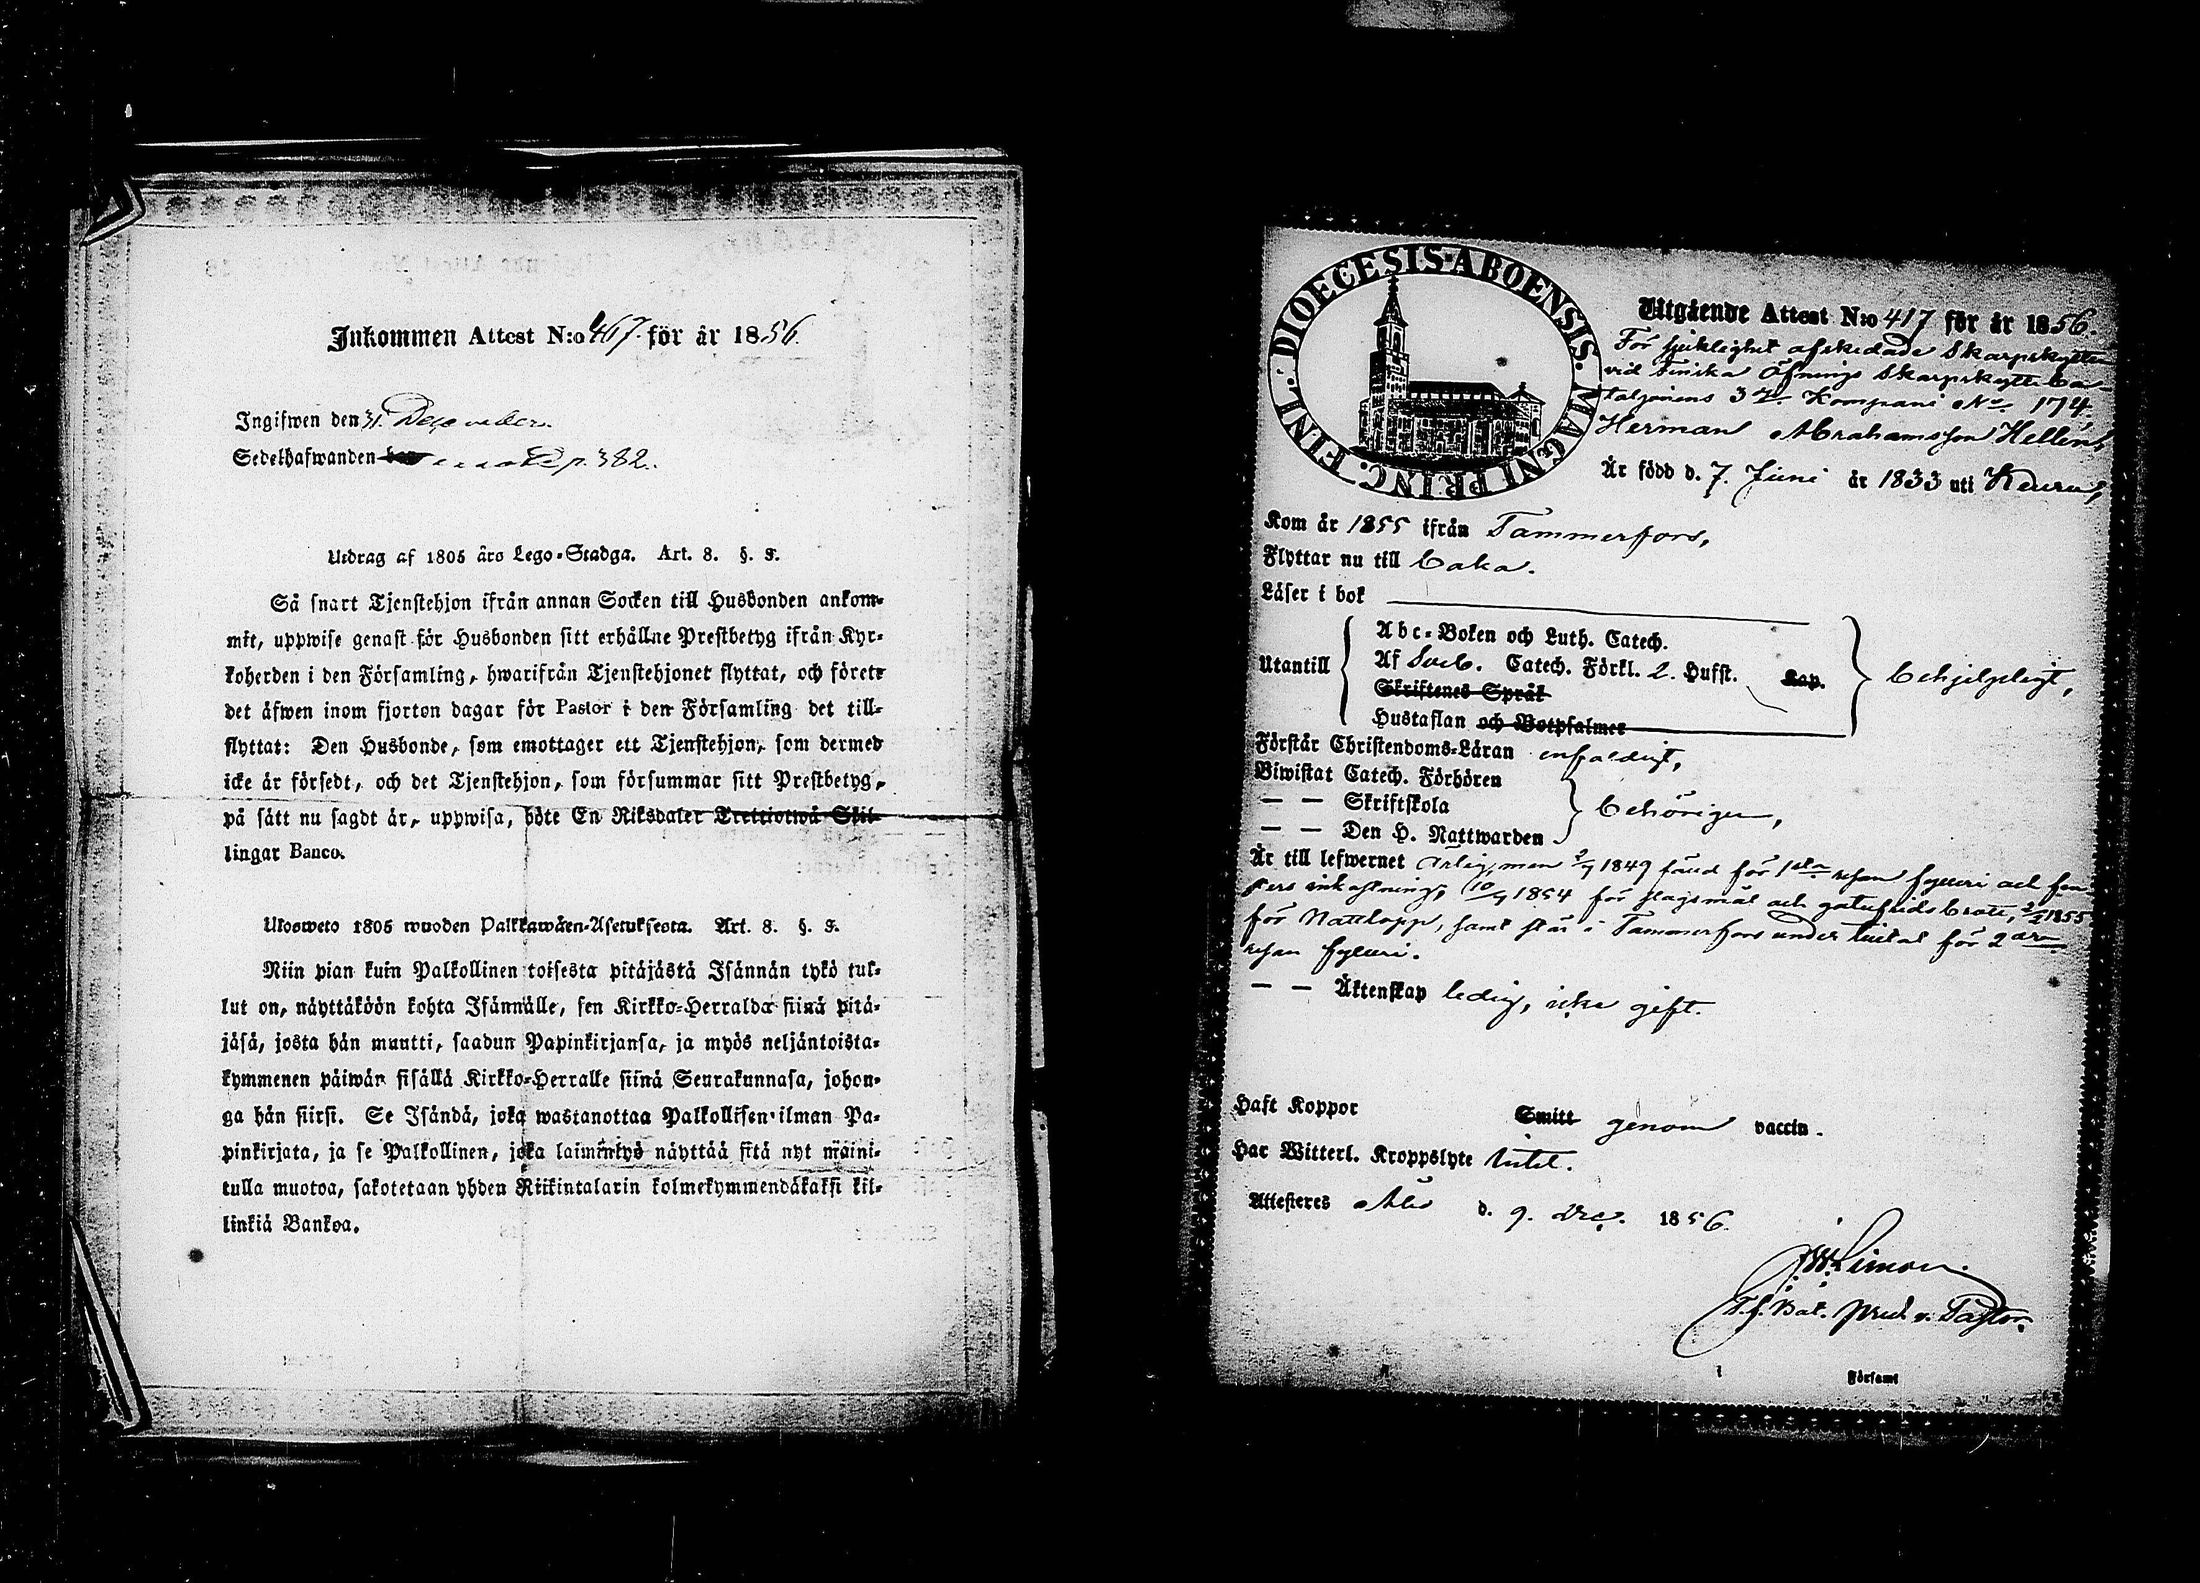 Inkommen Attest N:o 467. för år 1856.
Ingifwen den 31. December.
Sedelhafwanden p. 382.
Utdrag af 1805 års Lego-Stadga. Art. 8. §. 8.
Så snart Tjenstehjon ifrån annan Socken till Husbonden ankom-
mit, uppwise genast för Husbonden sitt erhållne Prestbetyg ifrån Kyr-
koherden i den Församling, hwarifrån Tjenstehjonet flyttat, och förete
det äfwen inom fjorton dagar för Pastor i den Församling det till-
flyttat: Den Husbonde, som emottager ett Tjenstehjon, som dermed
icke är försedt, och det Tjenstehjon, som försummar sitt Prestbetyg,
på sätt nu sagdt är, uppwisa, böte En Riksdaler Trettiotwå Skil-
lingar Banco.
Ulosweto 1805 wuoden Palkkawäen-Asetuksesta. Art. 8. §. 8.
Niin pian kuin Palkollinen toisesta pitäjästä Isännän tykö tul-
lut on, näyttäköön kohta Isännälle, sen Kirkko-Herralda siinä pitä-
jäsä, josta hän muutti, saadun Papinkirjansa, ja myös neljäntoista-
kymmenen päiwän sisällä Kirkko-Herralle siinä Seurakunnasa, johon-
ga hän siirsi. Se Isändä, joka wastanottaa Palkollisen ilman Pa-
pinkirjata, ja se Palkollinen, joka laiminlyö näyttää sitä nyt maini-
tulla muotoa, sakotetaan yhden Riikintalarin kolmekymmendäkaksi kil-
linkiä Bankoa.
DIOECESIS ABOENSIS. MAGNI PRINC. FINL.
Utgående Attest N:o 417 för år 1856.
För sjuklighet afskedade Skarpskytten
vid Finska Öfnings Skarpskytte ba-
taljonens 3dje Kompani No. 174.
Herman Abrahamsson Hellén,
Är född d. 7. Juni år 1833 uti Keuru,
Kom år 1855 ifrån Tammerfors,
Flyttar nu till
Läser i bok
Utantill
Abc-Boken och Luth. Catech.
Af Sveb. Catech. Förkl. 2. Hufst. Kap.
Skriftenes Språk
Hustaflan och Botpsalmer
behjelpligt,
Förstår Christendoms-Läran enfaldigt,
Biwistat Catech. Förhören
— — Skriftskola
— — Den H. Nattwarden
behörigen,
Är till lefwernet ärlig, men 1849 sakfäld för 1sta resan fylleri och fön-
sters inkastning, 1854 för slagsmål och gatufridsbrott, 1855
för Nattlopp, samt står i Tammerfors under tilltal för 2dra
resan fylleri.
— — Äktenskap ledig, icke gift.
Haft Koppor Smitt genom vaccin.
Har Witterl. Kroppslyte intet.
Attesteres Åbo d. 9. Dec. 1856.
T.f. Bat. Pred. Pastor.
Församl